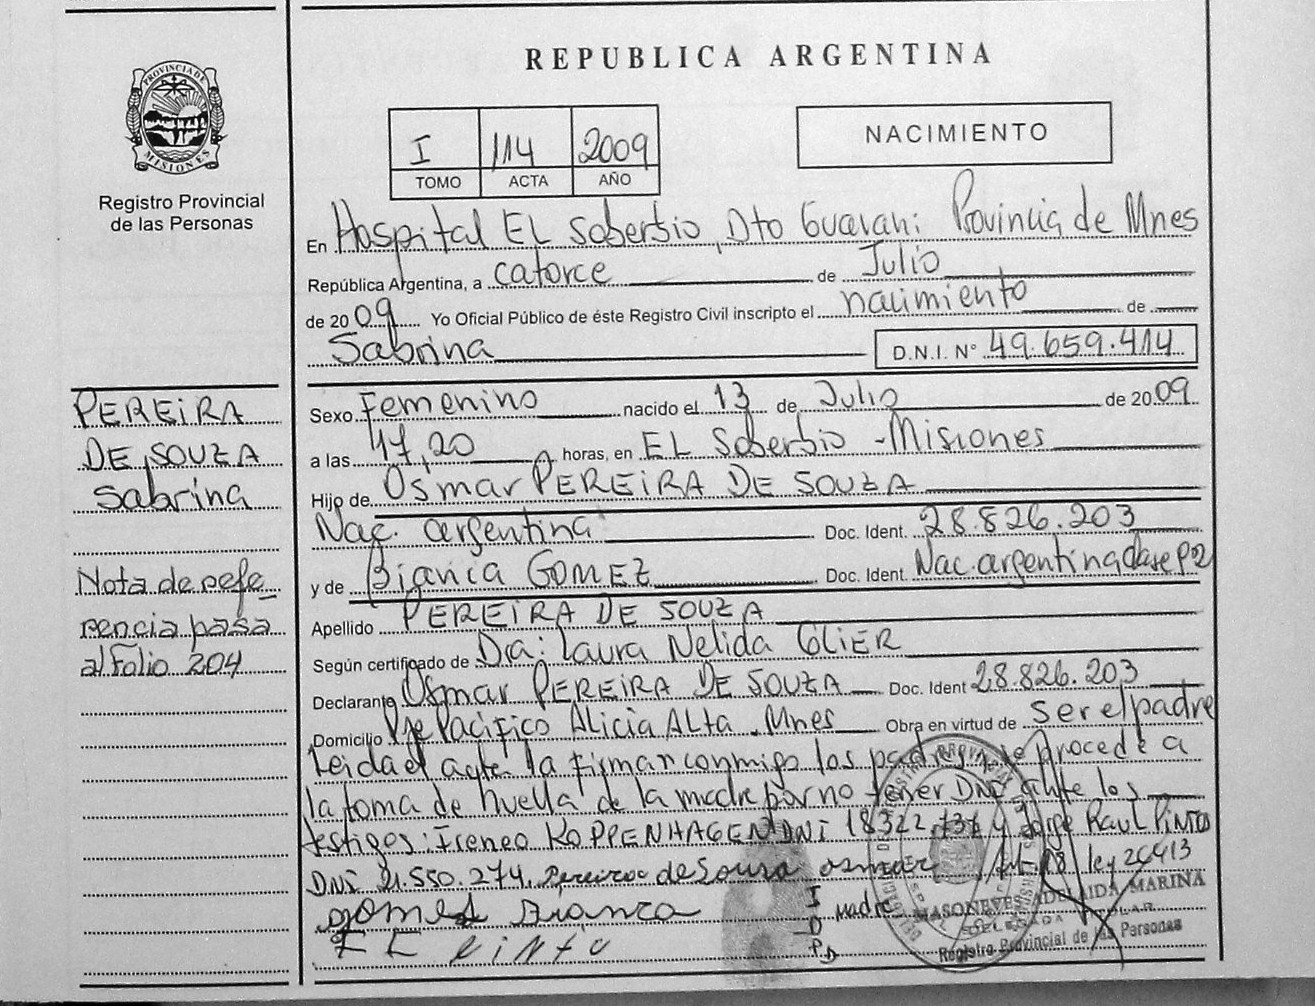 REPUBLICA ARGENTINA
PROVINCIA DE MISIONES
Registro Provincial
de las Personas
I 114 2009
TOMO ACTA AÑO
NACIMIENTO
En Hospital EL Soberbio, Dto Guarani Provincia de Mnes
República Argentina, a catorce de Julio
de 2009 Yo Oficial Público de éste Registro Civil inscripto el nacimiento de
Sabrina D.N.I. N° 49.659.414
PEREIRA
DE SOUZA
Sabrina
Nota de refe
rencia pasa
al Folio 204
Sexo Femenino nacido el 13 de Julio de 2009
a las 17,20 horas, en EL Soberbio - Misiones
Hijo de Osmar PEREIRA DE SOUZA
Nac. argentina Doc. Ident. 28.826.203
y de Bianca GOMEZ Doc. Ident. Nac. argentina clase
Apellido PEREIRA DE SOUZA
Según certificado de Dra: Laura Nelida GLIER
Declarante Osmar PEREIRA DE SOUZA Doc. Ident 28.826.203
Domicilio Pje Pacifico Alicia Alta Mnes Obra en virtud de ser el padre
Leida el acta la firman conmigo los padres, se procede a
la toma de huella de la madre por no tener DNI ante los
testigos: Ireneo KOPPENHAGEN DNI 18322 y Jorge Raul PINTO
DNI 21.550.274. Pereira de Souza osmar ley 26413
gomes Bianca I madre
D
PD
MASONEVES ADELAIDA MARINA
DELEGADA TITULAR
Registro Provincial de las Personas